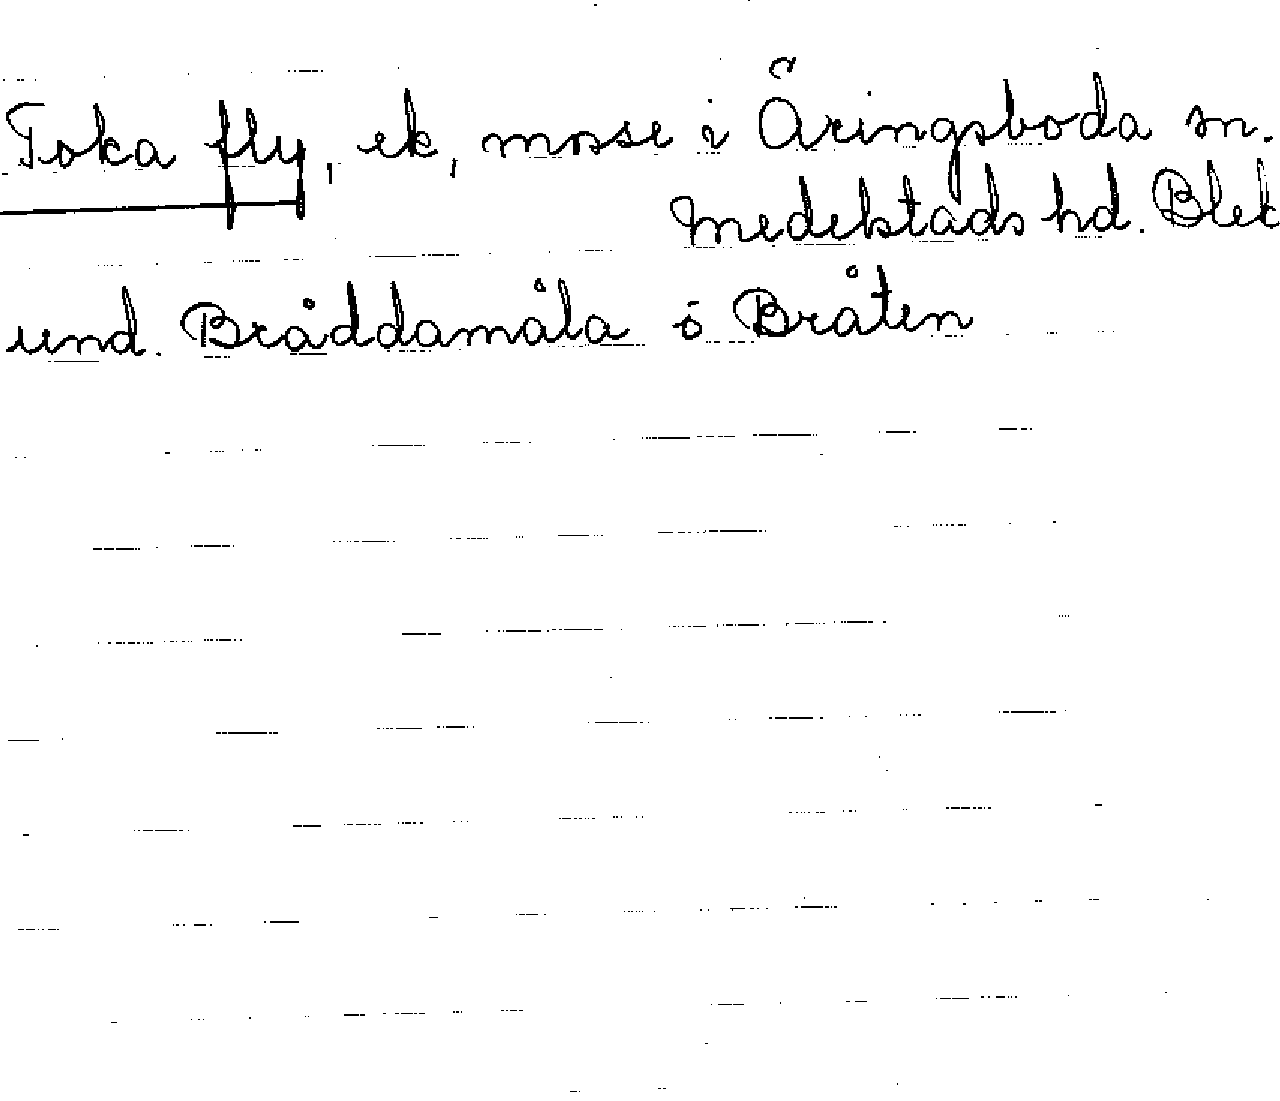 Toka fly, ek, mosse i Åringsboda sn.
Medelstads hd. Blek
und. Bråddamåla o Bråten